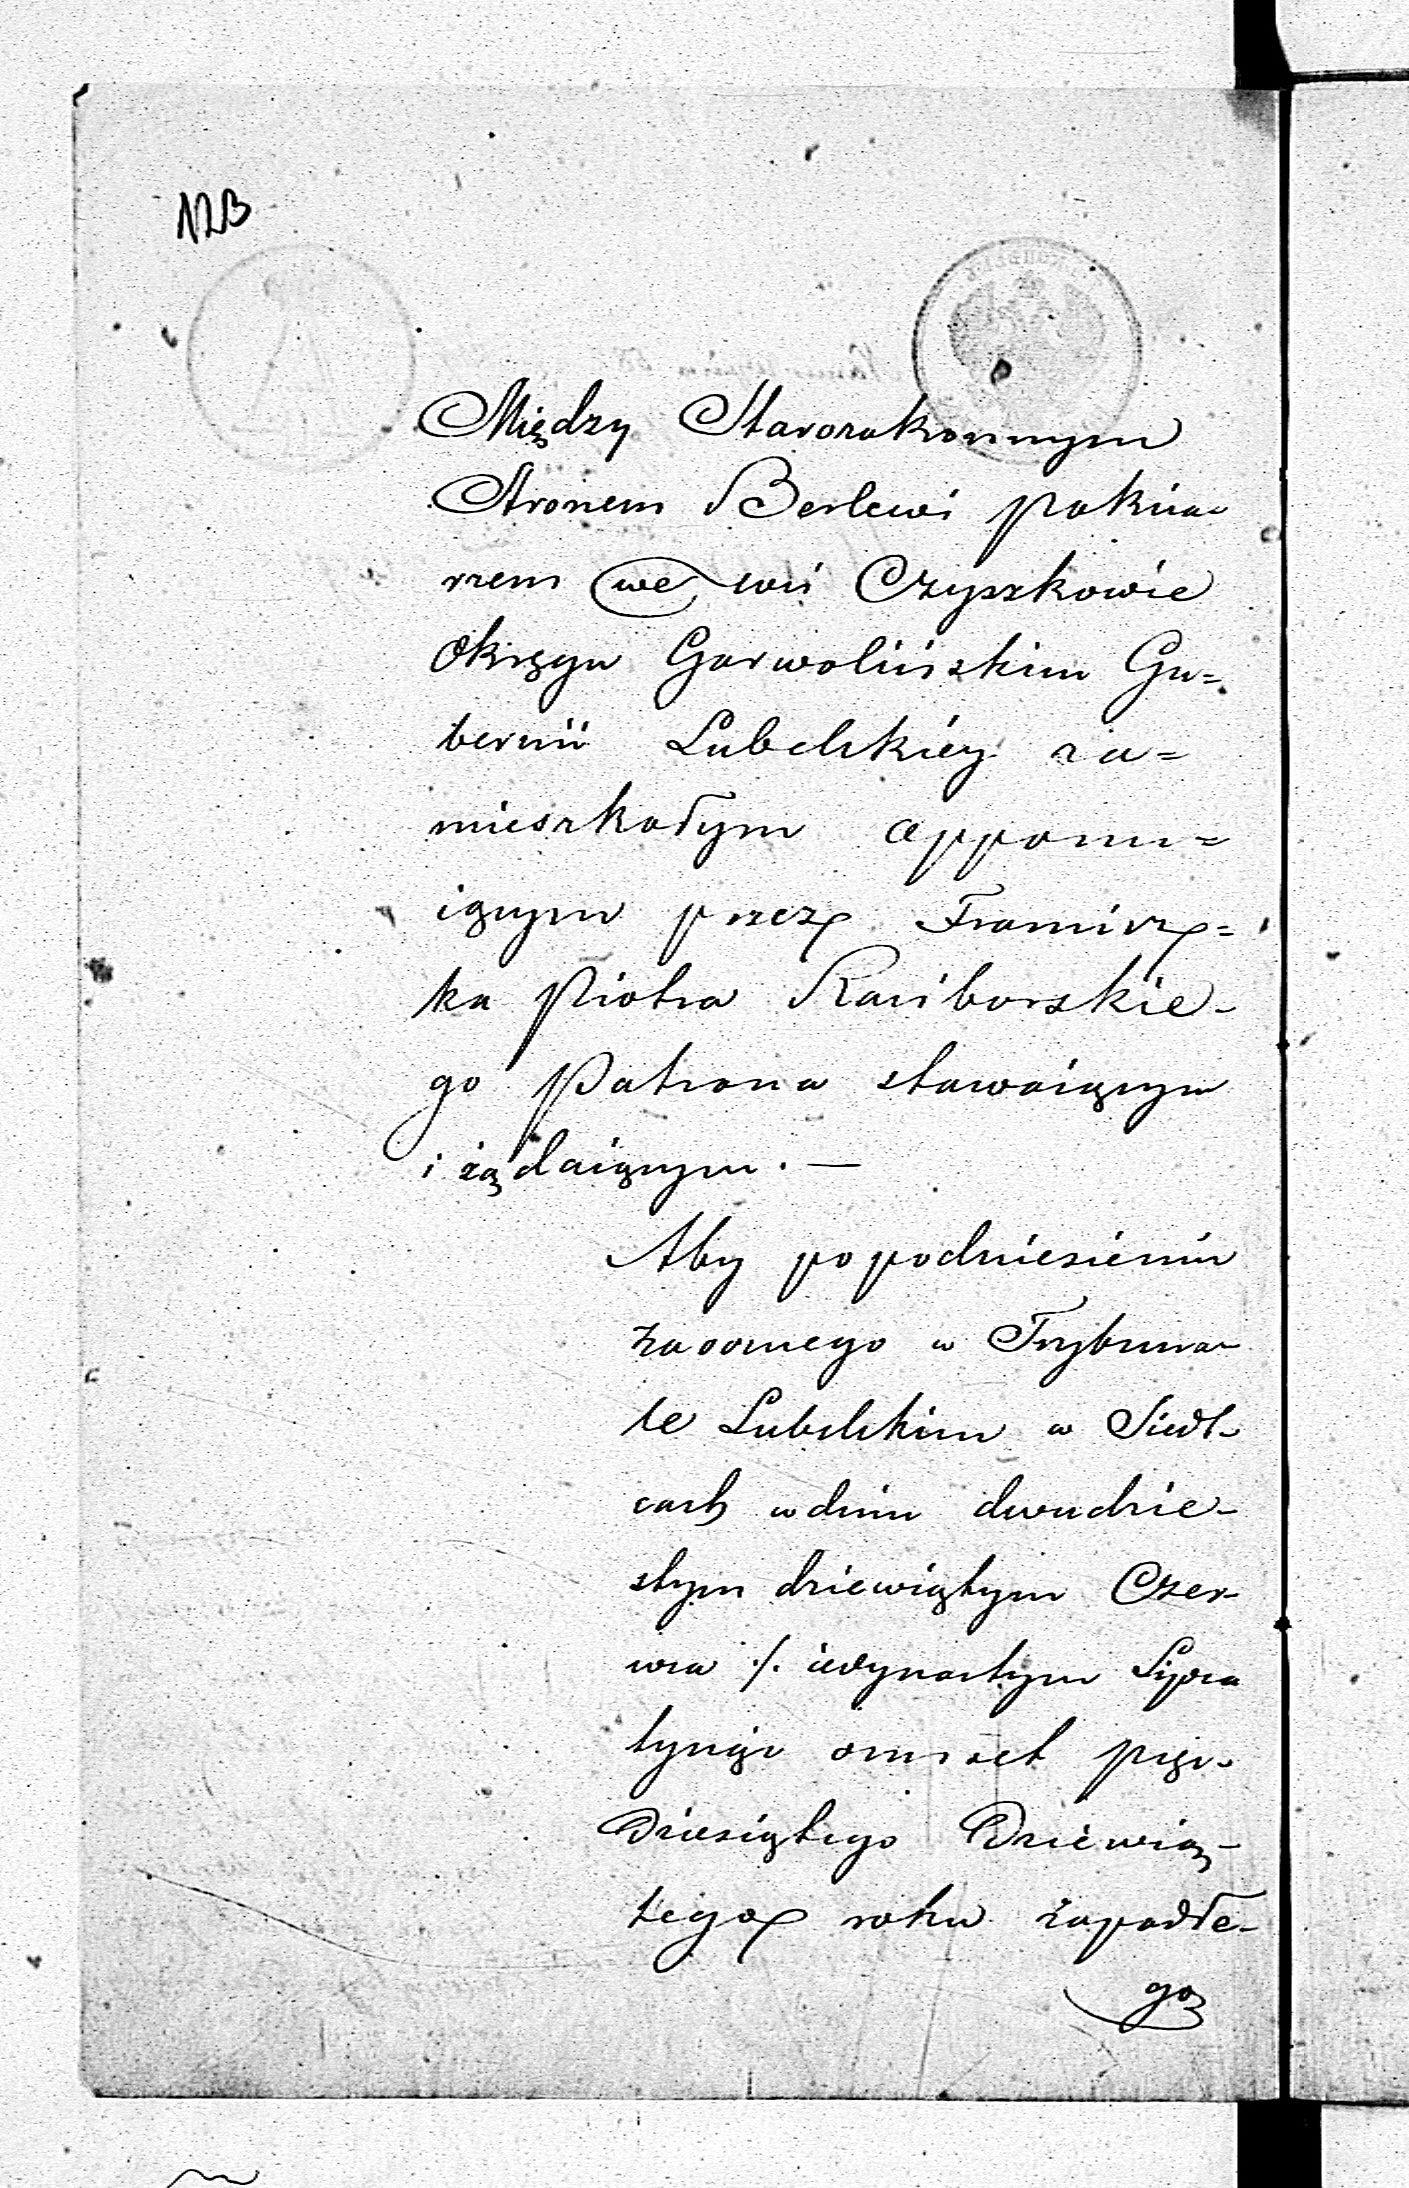 NB
Między Starozakonnym
Aronem Berlewi pakcia-
rzem we wsi Czyszkowie
Okręgu Garwolińskim Gu=
bernii Lubelskiéy za=
mieszkałym appellu=
iącym przez Franciszx=
ka Piotra Raciborskie-
go Patrona stawaiącym
i żądaiącym. —
Aby po podniesieniu
zaocznego w Trybuna-
le Lubelskim w Siedl-
cach w dniu dwudzie-
stym dziewiątym Czer-
wca /. iedynastym Lipca
tysiąc ośmset pięć-
Dziesiątego Dziewią-
tego roku zapadłe-
go